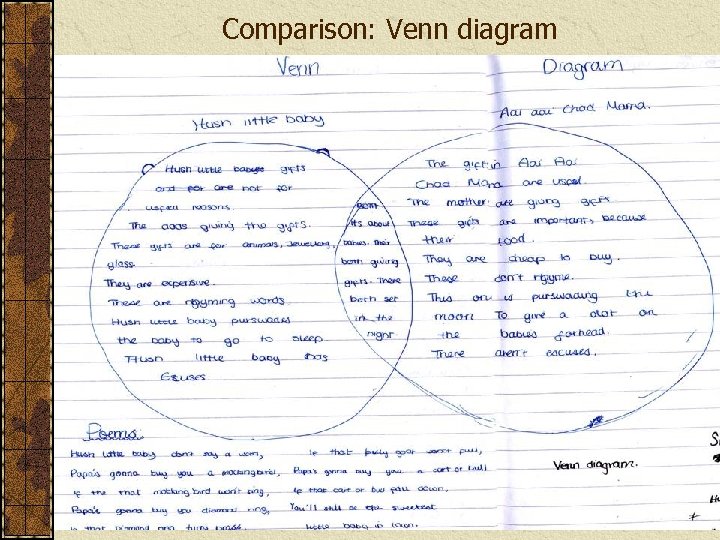 Comparison: Venn diagram
Venn Diagram
Hush little baby
Aai aai Chaa Mama.
Hush little babys gifts
and for are not for
usful reasons.
The dads giving the gifts.
These gifts are for animals, Jewelery,
glass.
They are expensive.
These are rhyming words.
Hush little baby purswades
the baby to go to sleep.
Hush little baby has
Both
its about
babies. Their
both giving
gifts. There
both set
in the
night.
The gift in Aai Aai
Chaa Mama are usful.
The mother are giving gifts
These gifts are important, because
their food.
They are cheap to buy.
These don't rhyme.
This on is purswading the
moon To give a dot on
the babies forhead.
There aren't escuses.
Poems
Hush little baby don't say a word,
Papa's gonna buy you a mockingbird,
If the that mocking bird won't sing,
Papa's gonna buy you diamond ring,
Is that diamond ring turns brass,
Is that goat won't pull,
Papa's gonna buy you a cart or bull
If that cart or bull fall down,
You'll still be the sweetest
little baby in town.
Venn diagram.